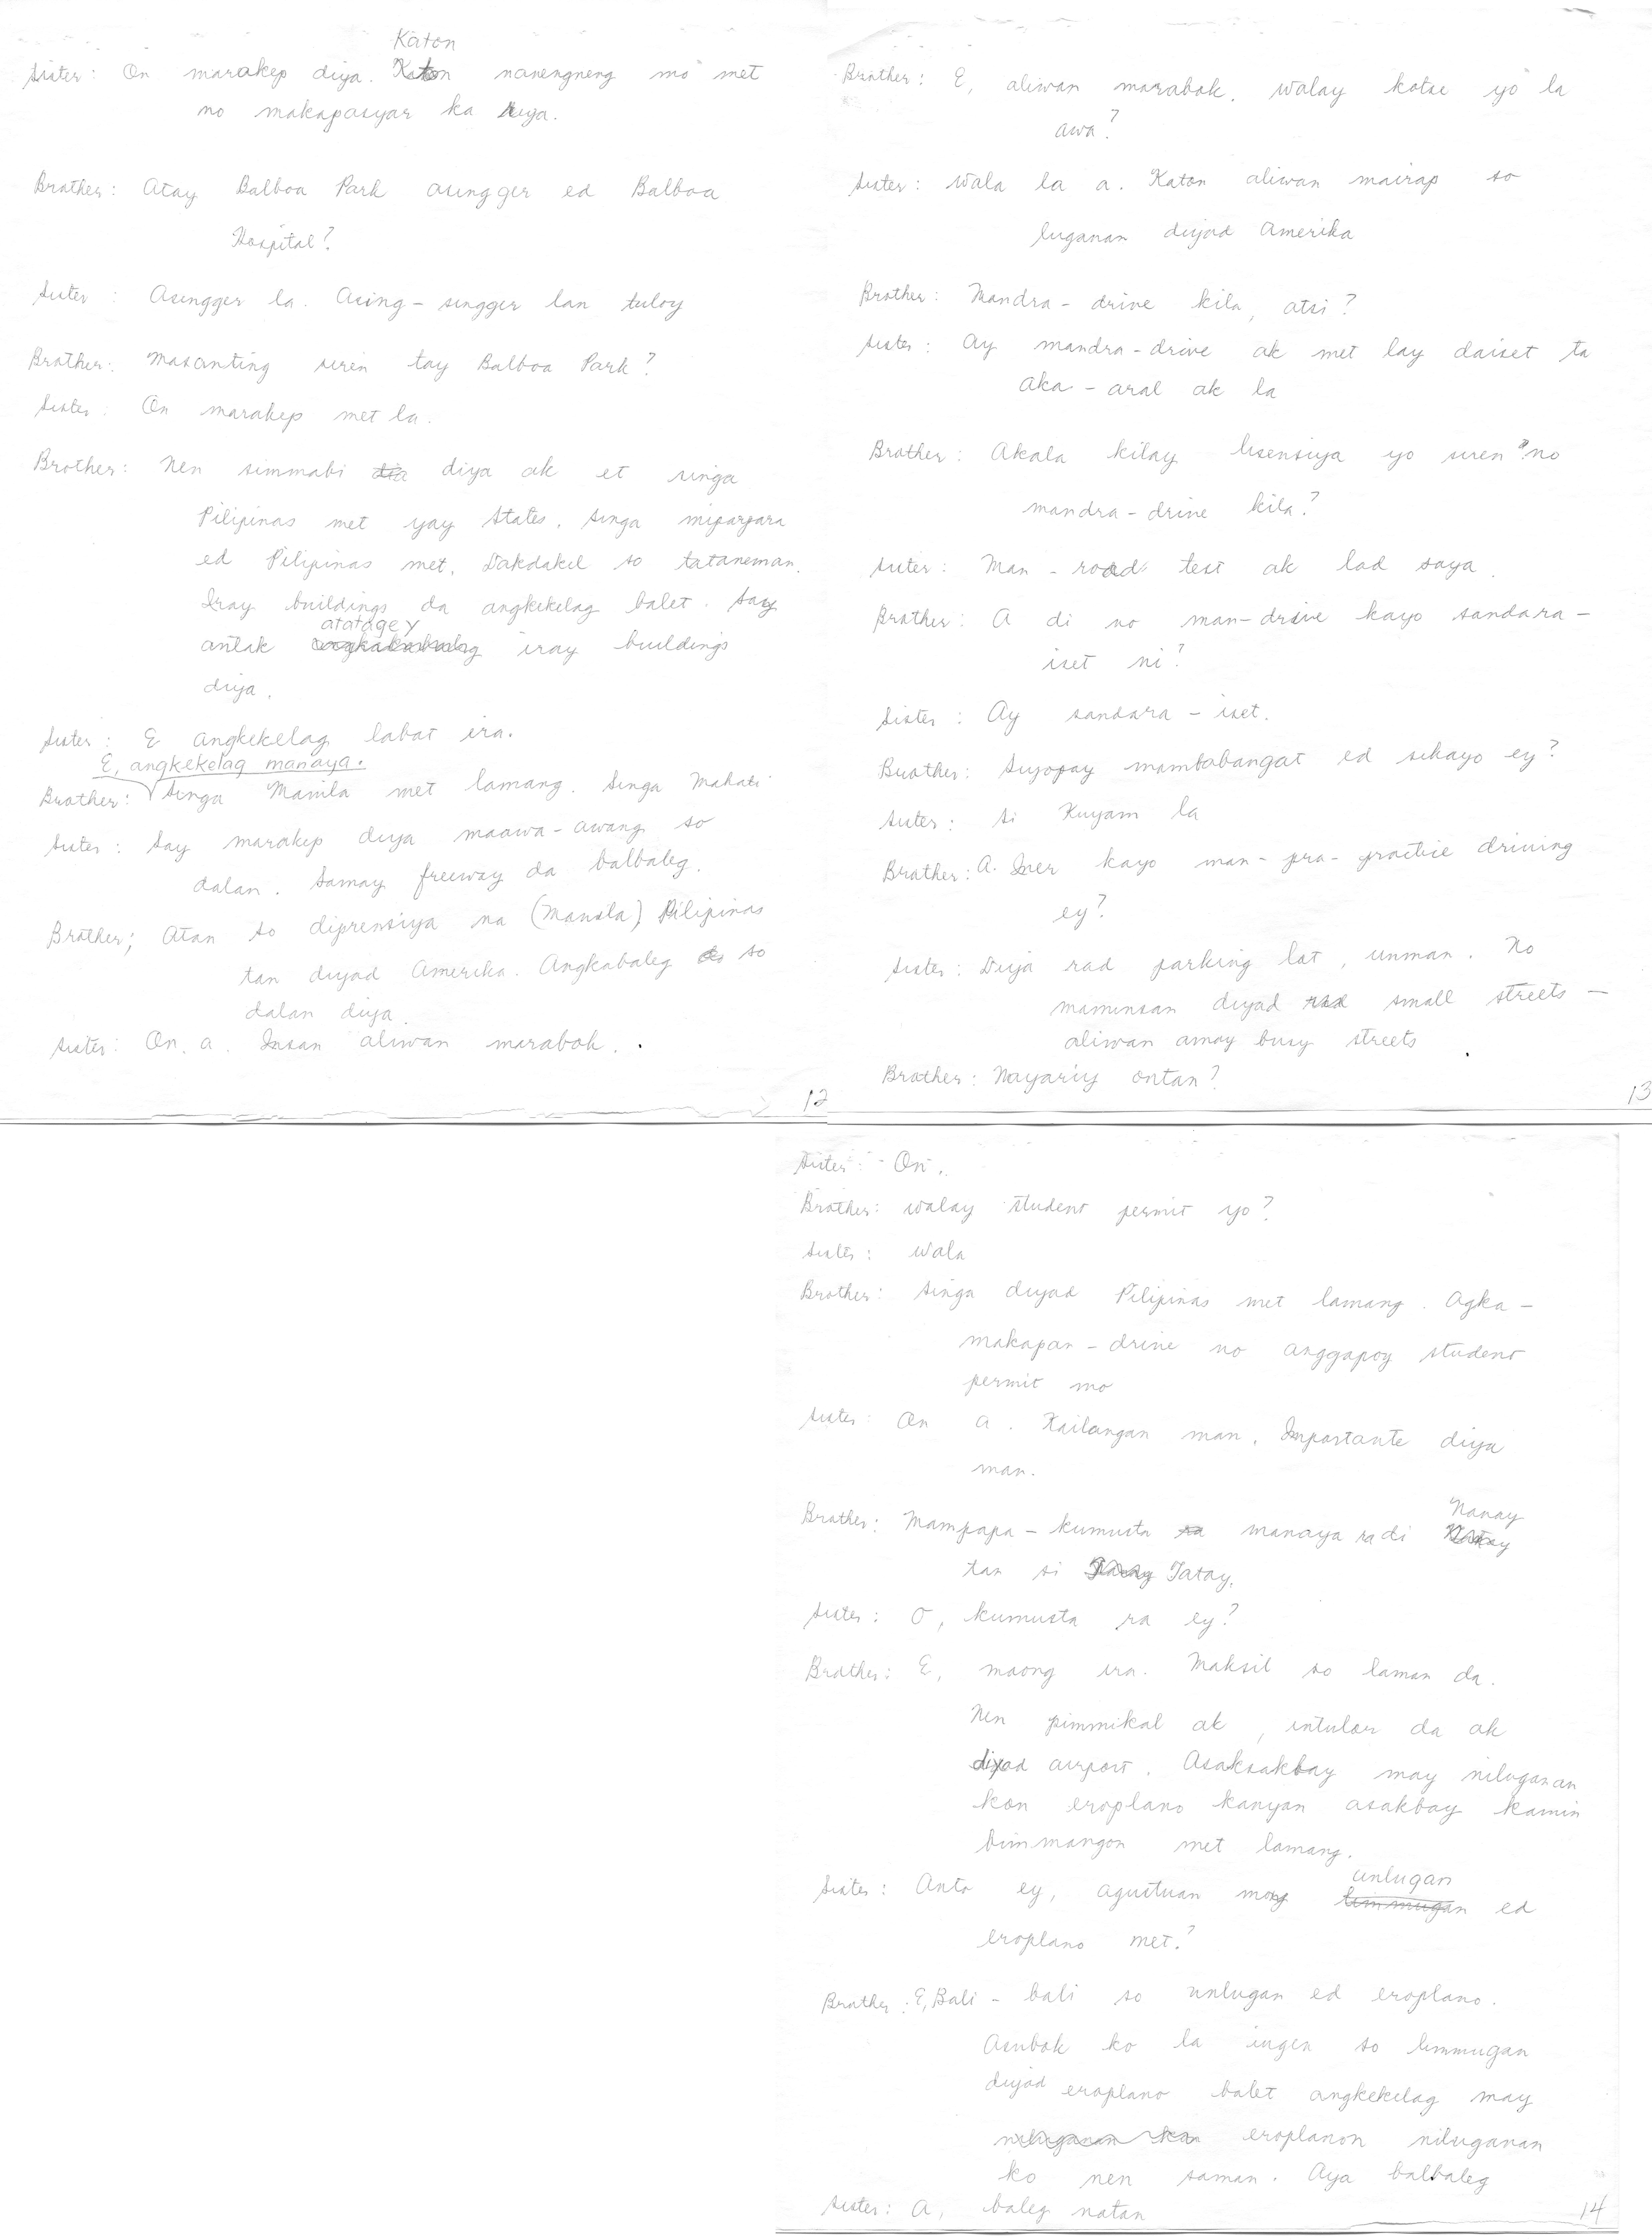 Katon
Sister: On marakep diya. Katon nanengneng mo met
no makapasyar ka diya.
Brother: Atay Balboa Park asingger ed Balboa
Hospital?
Sister: Asingger la. Asing-singger lan tuloy
Brother: Masanting siren tay Balboa Park?
Sister: On marakep met la.
Brother: Nen simmabi dia diya ak et singa
Pilipinas met yay States. Singa miparpara
ed Pilipinas met. Dakdakel so tataneman.
Iray buildings da angkekelag balet. Say
atatagey
antak iray buildings
diya.
Sister: E angkekelag labat ira.
E, angkekelag manaya.
Brother: Singa Manila met lamang. Singa Makati
Sister: Say marakep diya maawa-awang so
dalan. Samay freeway da balbaleg.
Brother; Atan so diprensiya na (Manila) Pilipinas
tan diyad Amerika. Angkabaleg so
dalan diya.
Sister: On. a. Insan aliwan marabok.
12
Brother: E, aliwan marabok. Walay kotse yo la
awa?
Sister: Wala la a. Katon aliwan mairap so
luganan diyad Amerika
Brother: Mandra-drive kila, atsi?
Sister: Ay mandra-drive ak met lay daiset ta
aka-aral ak la
Brother: Akala kilay lisensiya yo siren? no
mandra-drive kila?
Sister: Man-road test ak lad saya.
Brother: A di no man-drive kayo sandara-
iset ni?
Sister: Ay sandara-iset.
Brother: Siyopay mambabangat ed sikayo ey?
Sister: Si Kuyam la
Brother: A. Iner kayo man-pra-practice driving
ey?
Sister: Diya rad parking lot, unman. No
maminsan diyad rad small streets -
aliwan amay busy streets
Brother: Nayariy ontan?
13
Sister: On.
Brother: Walay student permit yo?
Sister: Wala
Brother: Singa diyad Pilipinas met lamang. Agka-
makapan-drive no anggapoy student
permit mo
Sister: On a. Kailangan man. Importante diya
man.
Nanay
Brother: Mampapa-kumusta ra manaya ra di
tan si Tatay.
Sister: O, kumusta ra ey?
Brother: E, maong ira. Maksil so laman da.
Nen pimmikal ak, intulor da ak
diyad airport. Asaksakbay may niluganan
kon eroplano kanyan asakbay kamin
bimmangon met lamang.
unlugan
Sister: Anto ey, agustuan moy limmugan ed
eroplano met?
Brother: E, Bali-bali so unlugan ed eroplano.
Asubok ko la ingen so limmugan
diyad eroplano balet angkekelag may
niluganan kon eroplanon niluganan
ko nen saman. Aya balbaleg
Sister: A, baleg natan
14